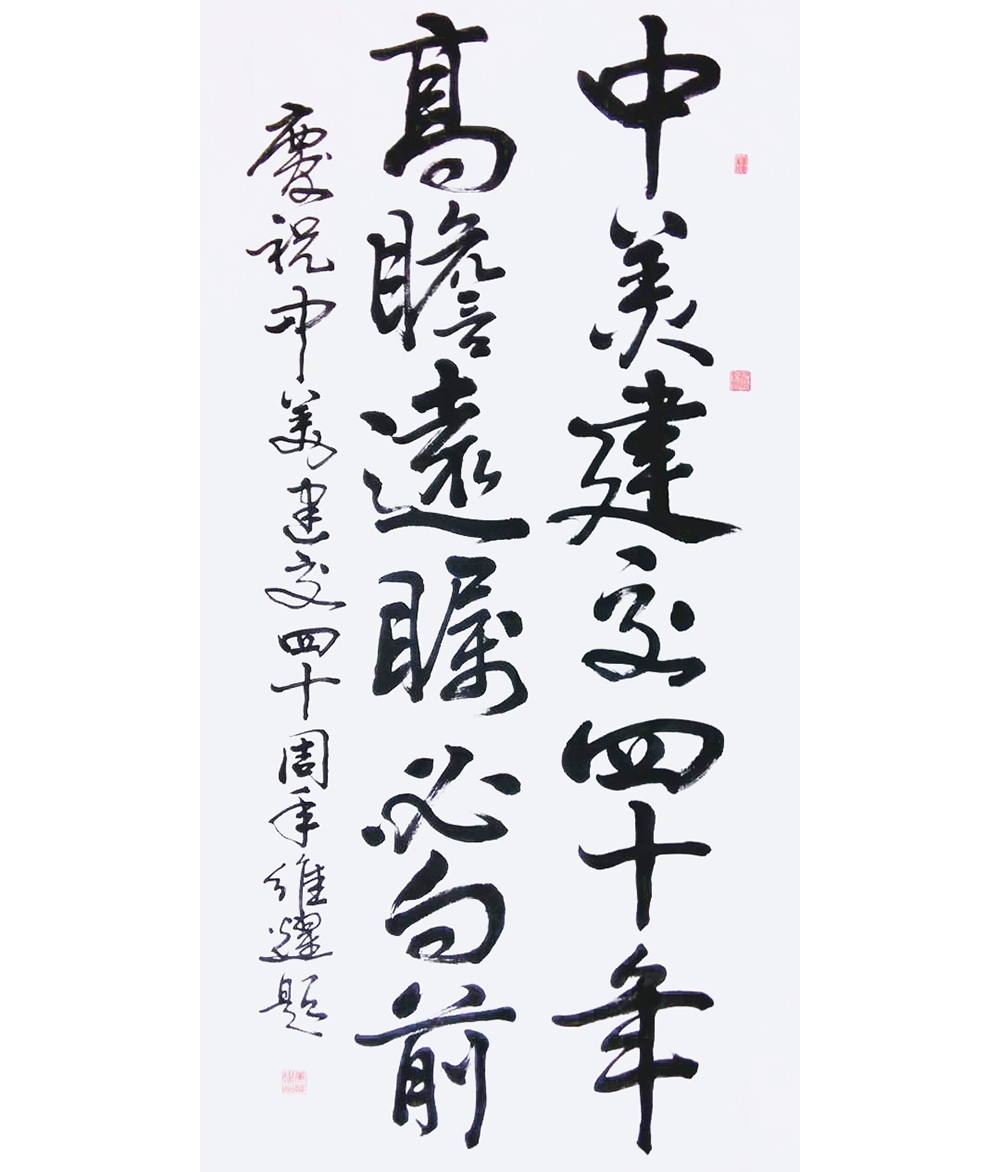 中美建交四十年
高瞻遠瞩必向前
慶祝中美建交四十周年維耀題